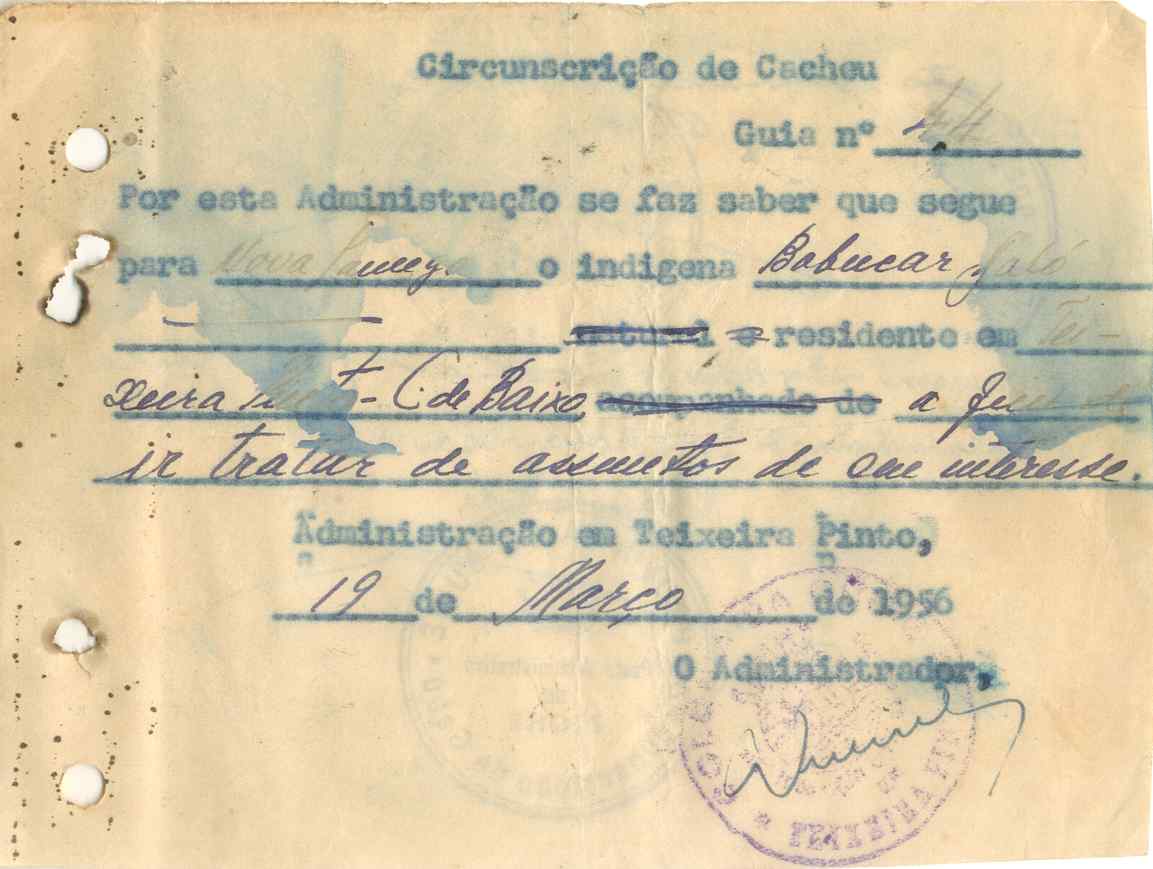 Circunscrição de Cacheu
Guia nº 44
Por esta Administração se faz saber que segue
para Nova Lamego o indigena Bobucar Jaló
natural e residente em Tei-
xeira Pinto - (de Baixo, acompanhado de a fim de
ir tratar de assuntos de seu interesse.
Administração em Teixeira Pinto,
19 de Março de 1956
O Administrador,
TEIXEIRA PINTO